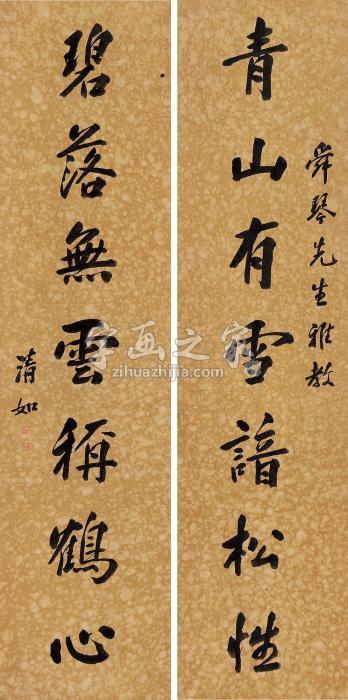 舜琴先生雅教
青山有雪諳松性
碧落無雲稱鶴心
清如
字画之家
zihuazhijia.com